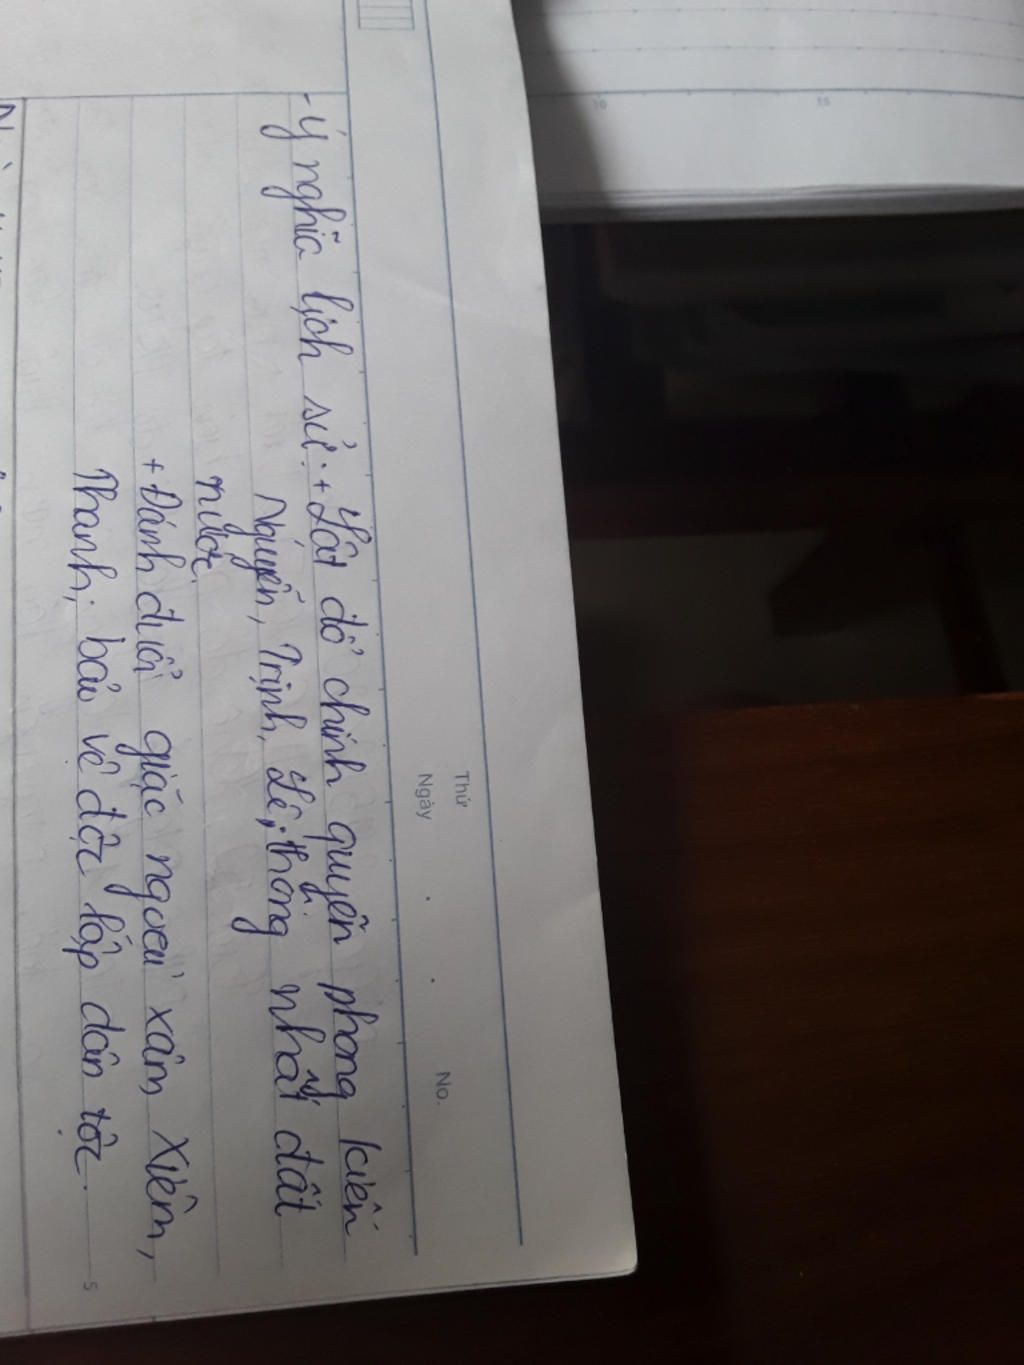 Thứ
Ngày . . No.
- Ý nghĩa lịch sử: + Lật đổ chính quyền phong kiến
Nguyễn, Trịnh, Lê; thống nhất đất
nước
+ Đánh đuổi giặc ngoại xâm Xiêm,
Thanh; bảo vệ độc lập dân tộc.
5
10 15